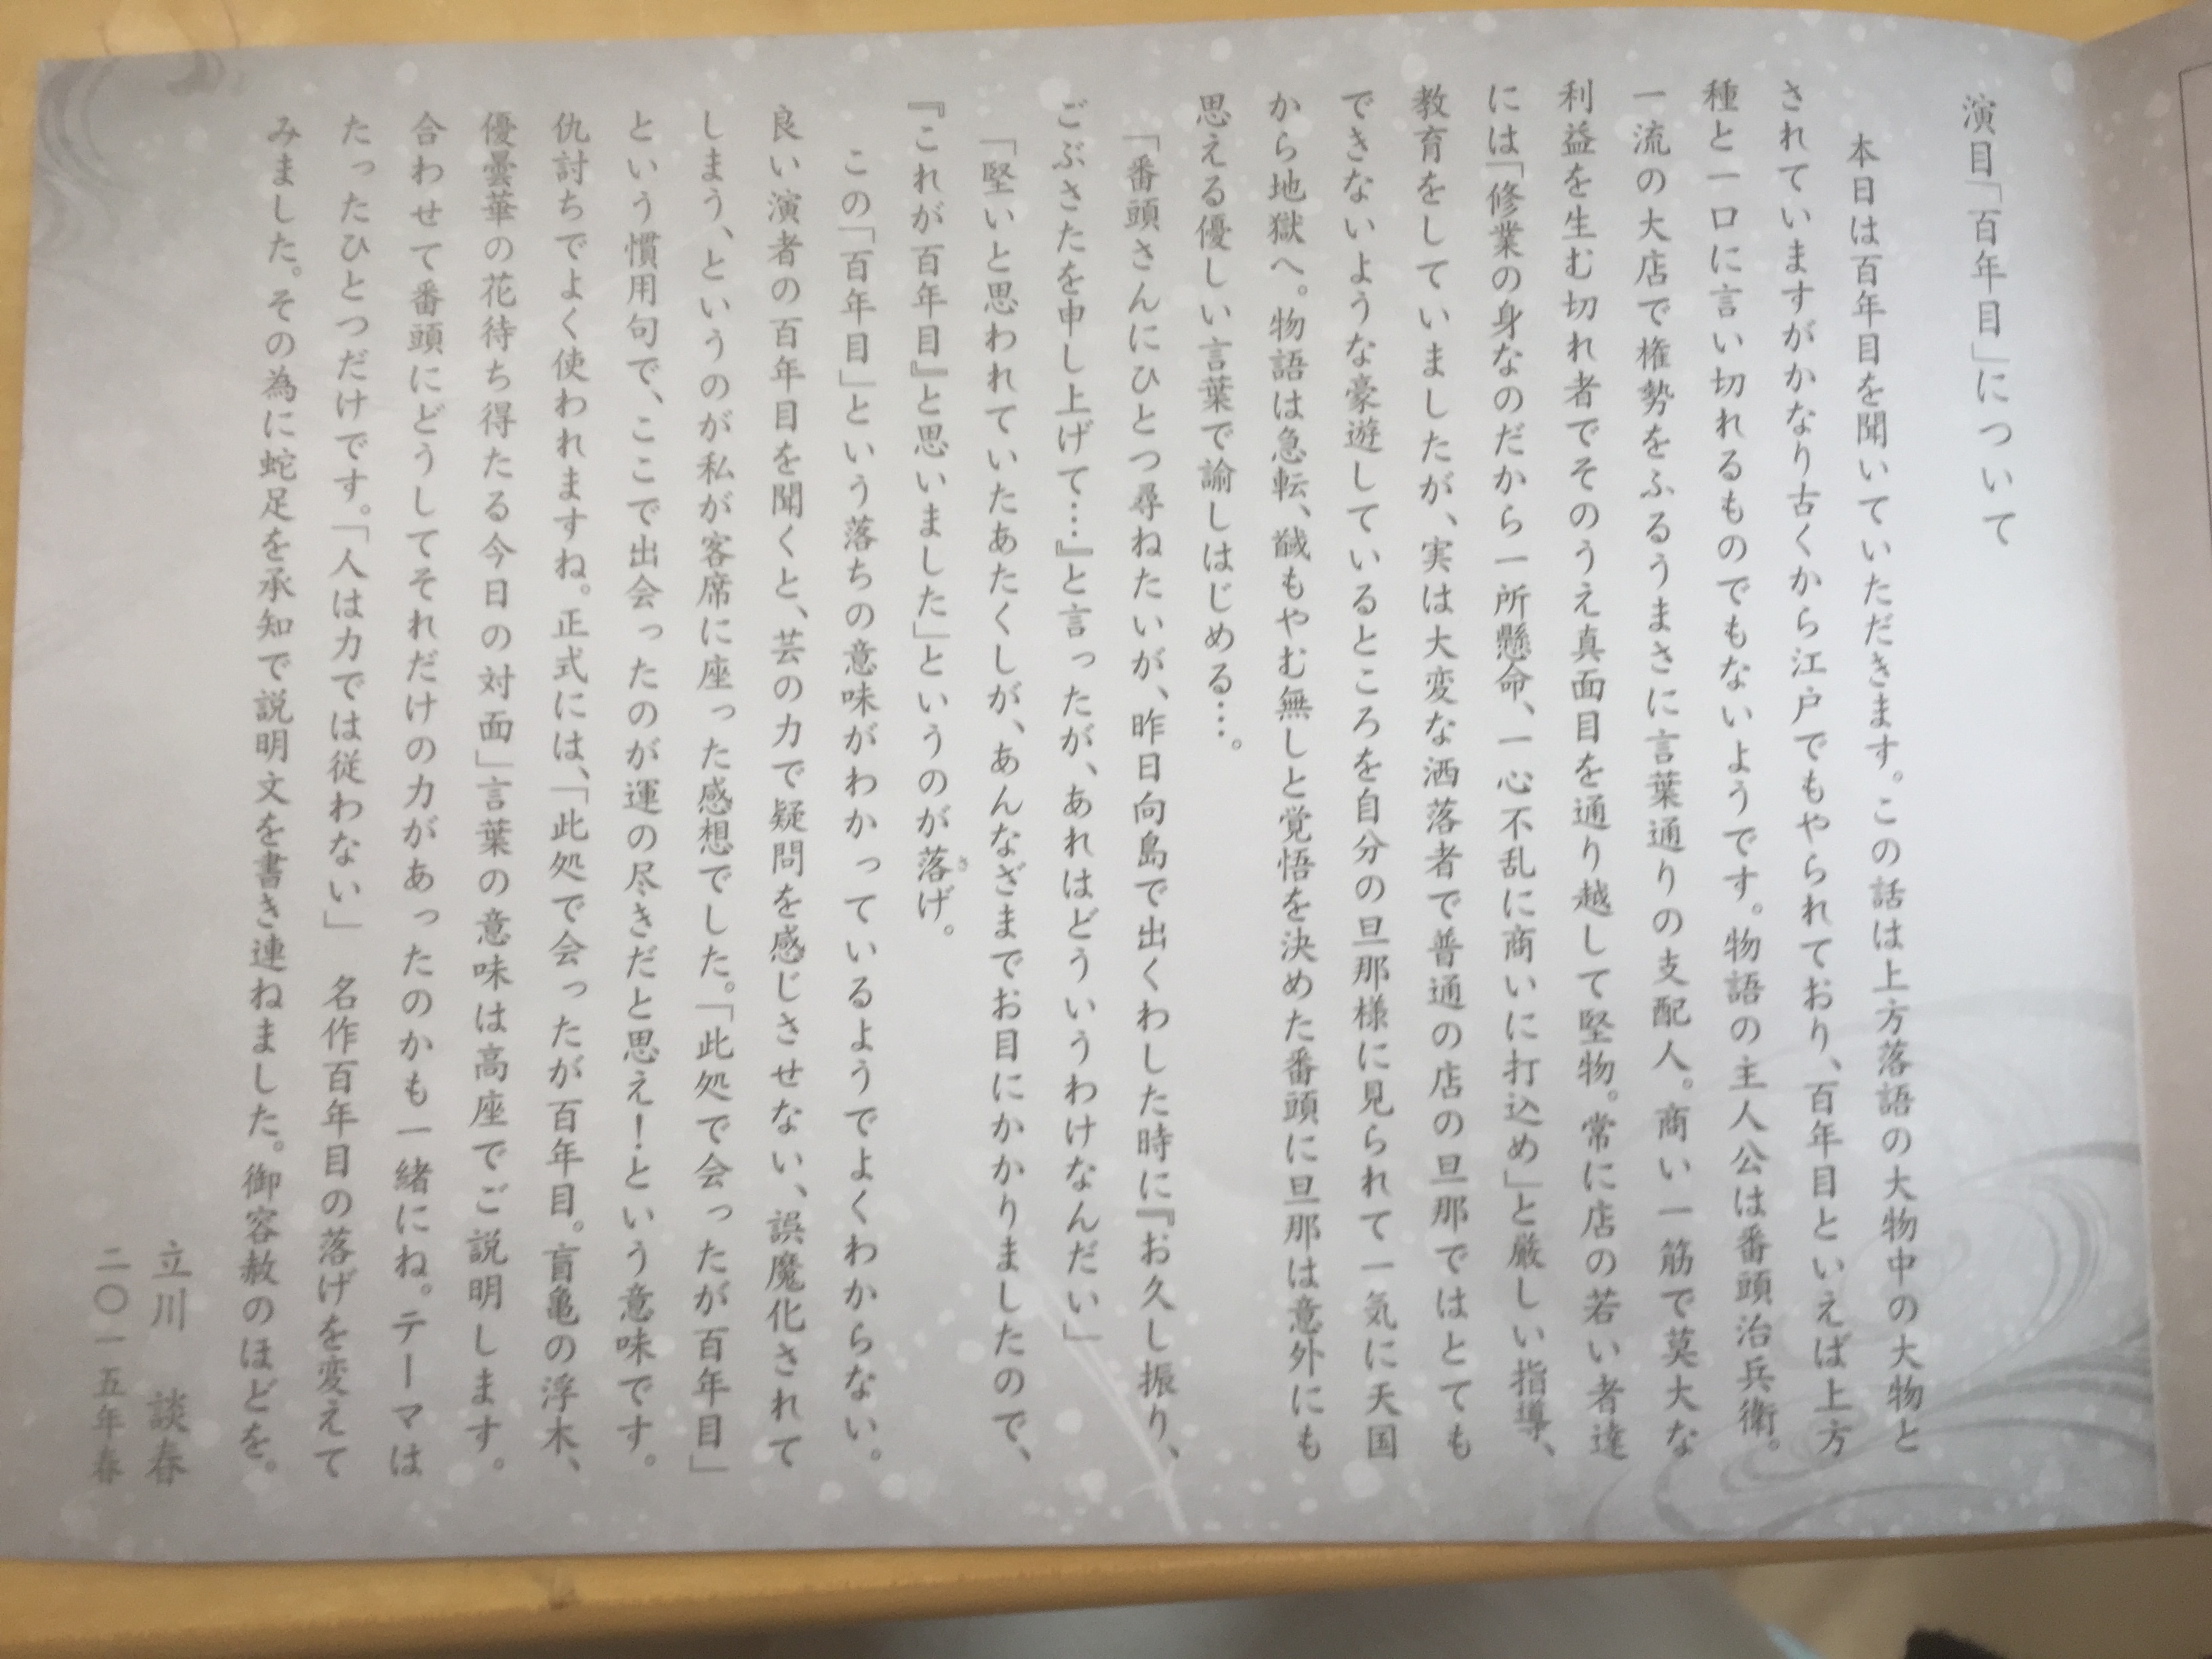 演目「百年目」について
本日は百年目を聞いていただきます。この話は上方落語の大物中の大物と
されていますがかなり古くから江戸でもやられており、百年目といえば上方
種と一口に言い切れるものでもないようです。物語の主人公は番頭治兵衛。
一流の大店で権勢をふるうまさに言葉通りの支配人。商い一筋で莫大な
利益を生む切れ者でそのうえ真面目を通り越して堅物。常に店の若い者達
には「修業の身なのだから一所懸命、一心不乱に商いに打込め」と厳しい指導、
教育をしていましたが、実は大変な洒落者で普通の店の旦那ではとても
できないような豪遊しているところを自分の旦那様に見られて一気に天国
から地獄へ。物語は急転、馘もやむ無しと覚悟を決めた番頭に旦那は意外にも
思える優しい言葉で諭しはじめる…。
「番頭さんにひとつ尋ねたいが、昨日向島で出くわした時に『お久し振り、
ごぶさたを申し上げて…』と言ったが、あれはどういうわけなんだい」
「堅いと思われていたあたくしが、あんなざまでお目にかかりましたので、
『これが百年目』と思いました」というのが落げ。
この「百年目」という落ちの意味がわかっているようでよくわからない。
良い演者の百年目を聞くと、芸の力で疑問を感じさせない、誤魔化されて
しまう、というのが私が客席に座った感想でした。「此処で会ったが百年目」
という慣用句で、ここで出会ったのが運の尽きだと思え！という意味です。
仇討ちでよく使われますね。正式には、「此処で会ったが百年目。盲亀の浮木、
優曇華の花待ち得たる今日の対面」言葉の意味は高座でご説明します。
合わせて番頭にどうしてそれだけの力があったのかも一緒にね。テーマは
たったひとつだけです。「人は力では従わない」　名作百年目の落げを変えて
みました。その為に蛇足を承知で説明文を書き連ねました。御容赦のほどを。
立川　談春
二〇一五年春